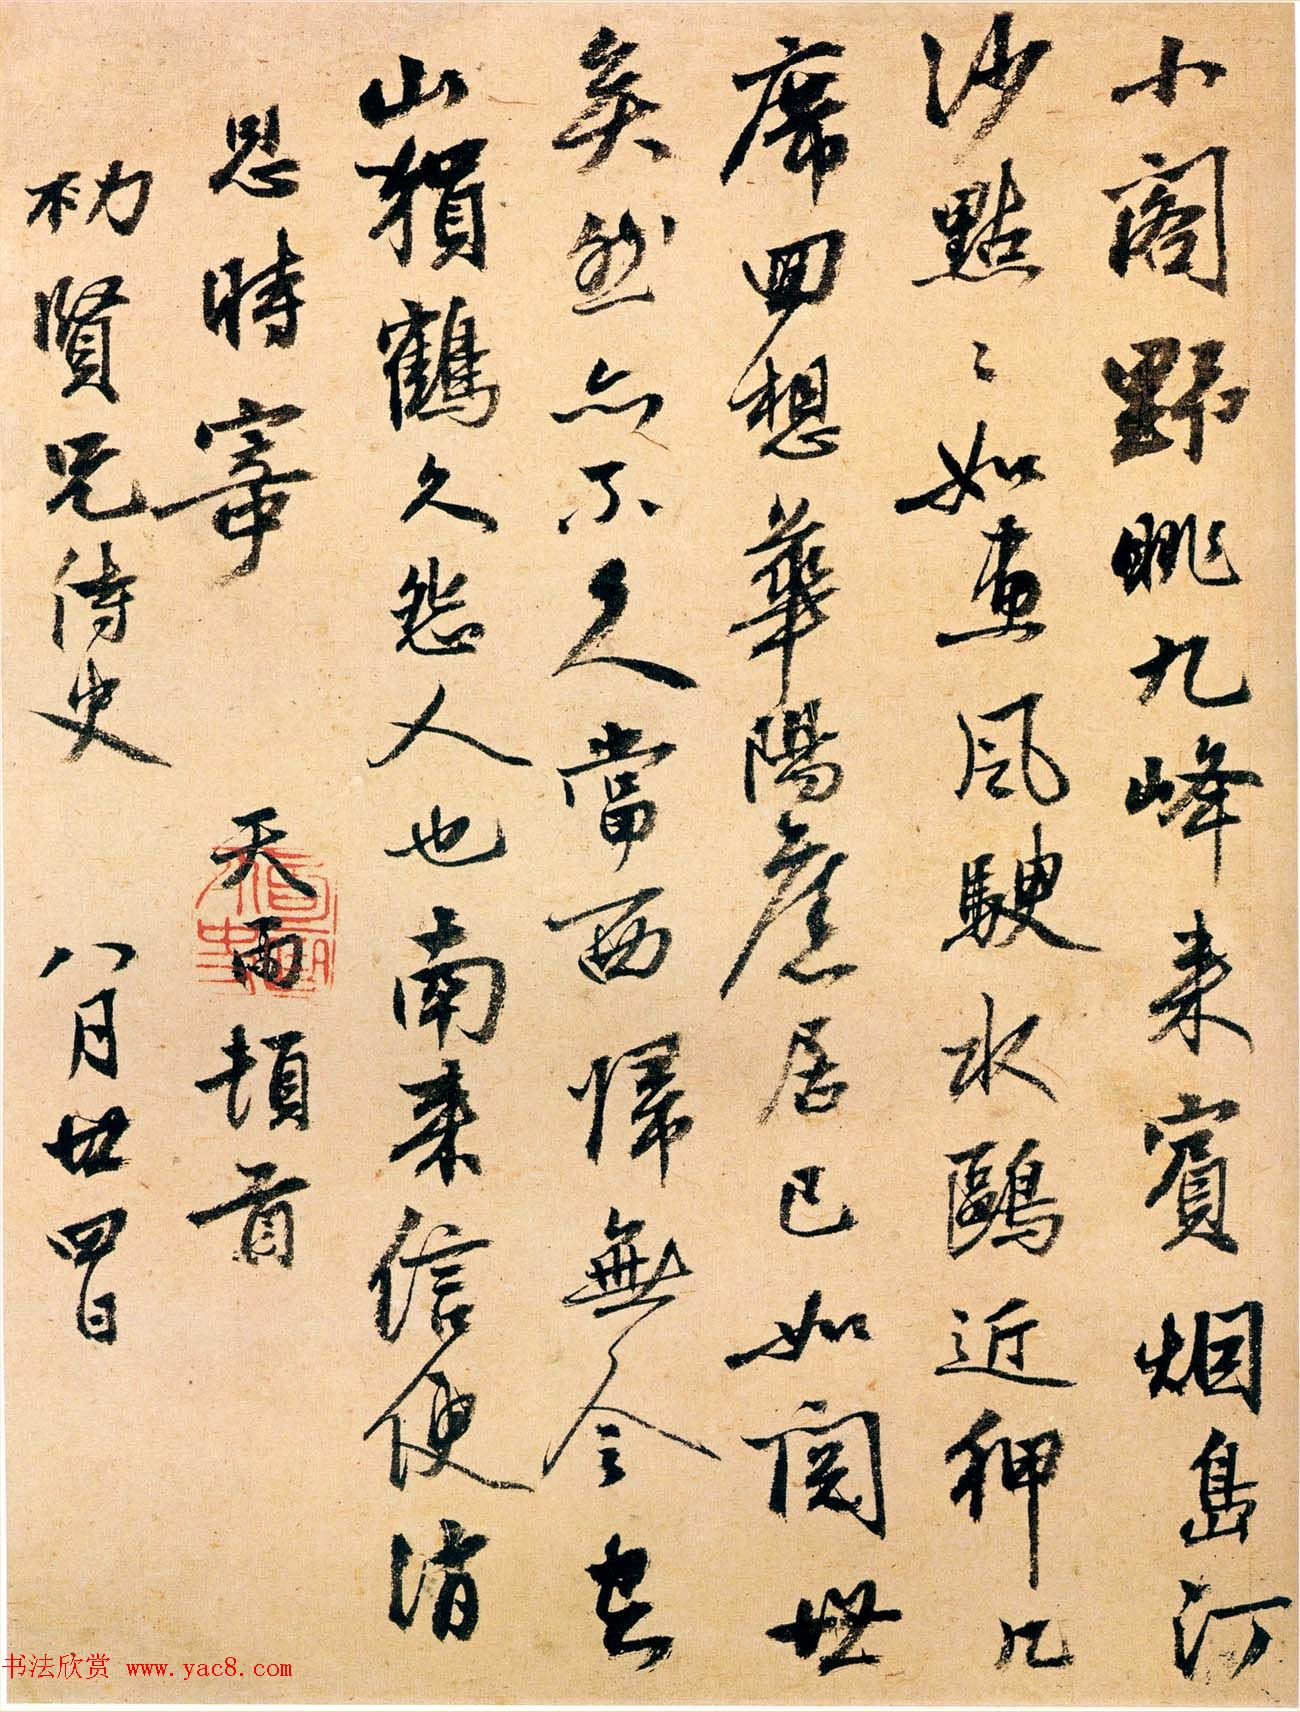 小閣野眺九峰来賓烟島汀
沙點〻如畫風駛水鷗近狎几
席回想華陽居已如閱世
矣然亦不久當西歸無令空
山猿鶴久怨人也南来信便
時
天雨頓首
賢兄侍史
八月廿四日
书法欣赏 www.yac8.com